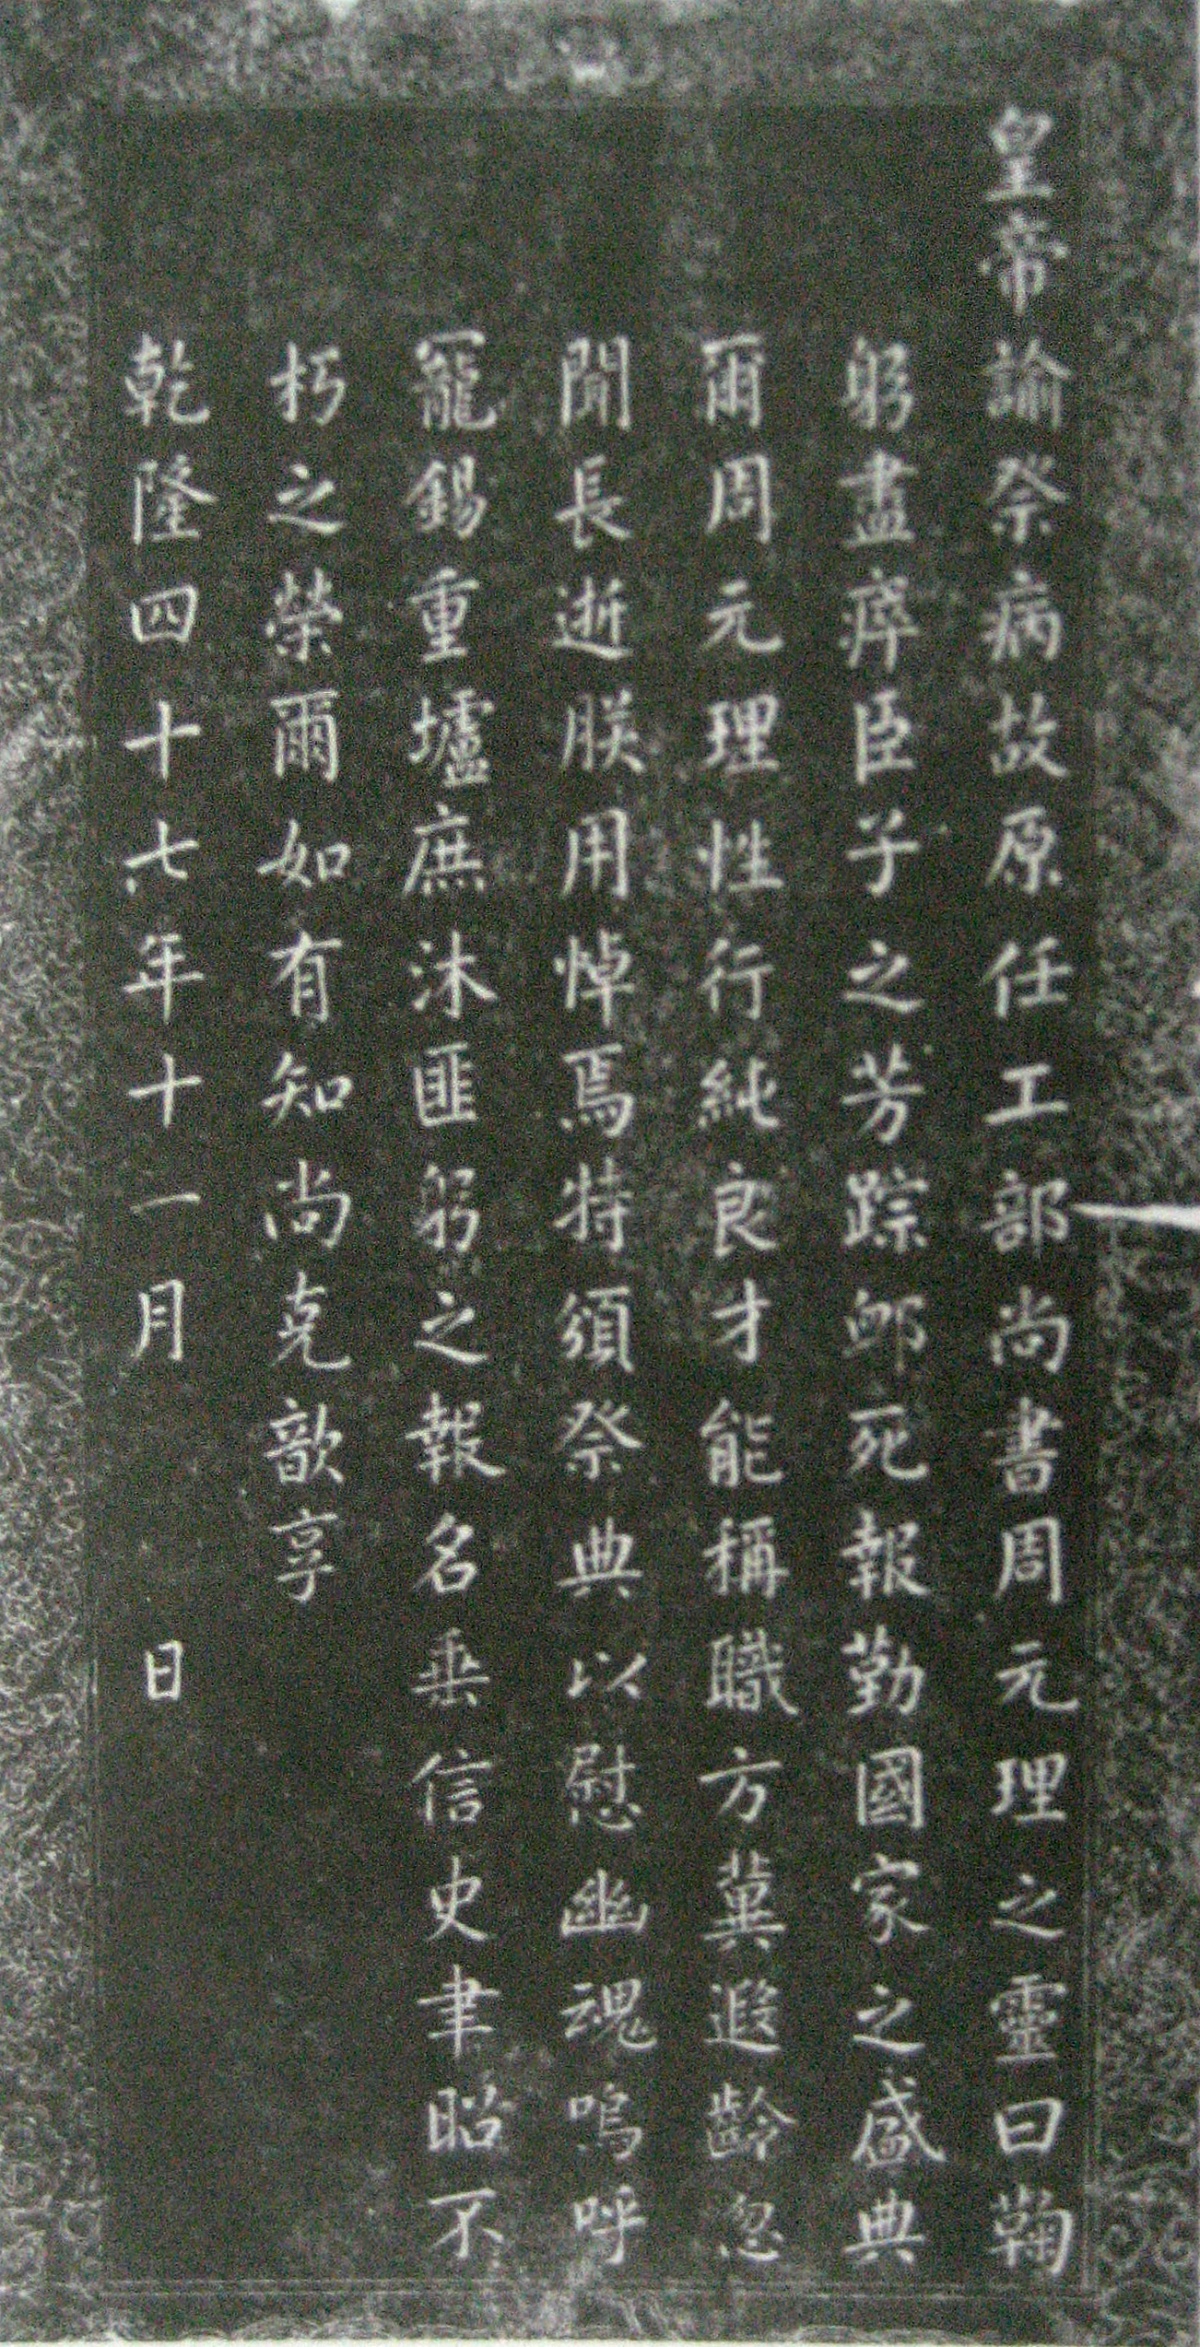 皇帝諭祭病故原任工部尚書周元理之靈曰鞠
躬盡瘁臣子之芳踪卹死報勤國家之盛典
爾周元理性行純良才能稱職方冀遐齡忽
聞長逝朕用悼焉特頒祭典以慰幽魂嗚呼
寵錫重壚庶沐匪躬之報名垂信史聿昭不
朽之榮爾如有知尚克歆享
乾隆四十七年十一月 日